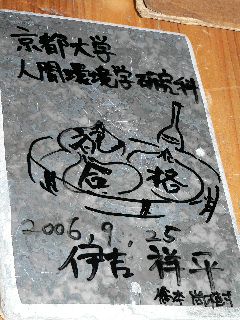 京都大学
人間環境学研究科
院
合格
2006,9,25
伊吉 祥平